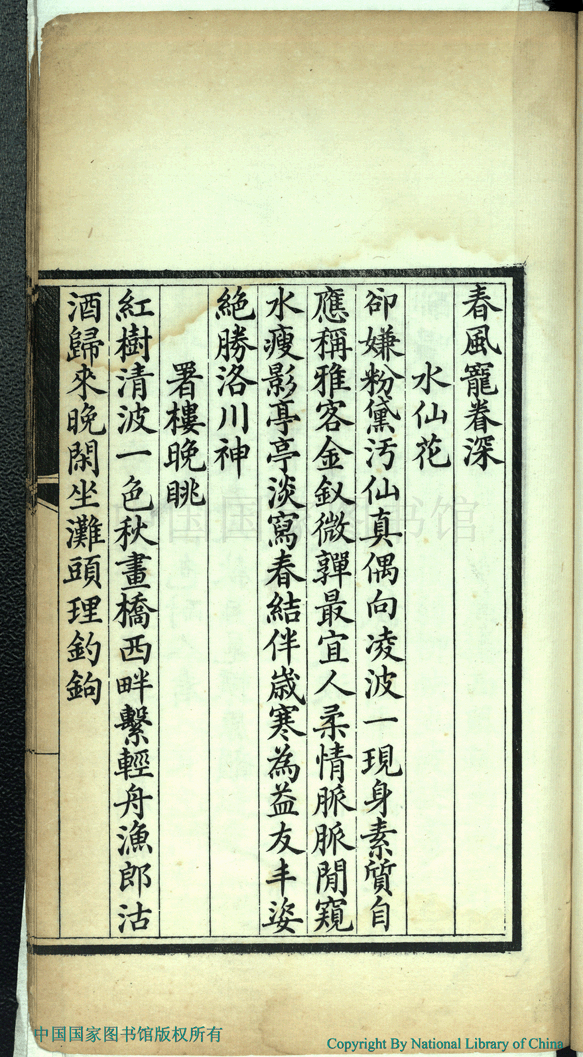 春風寵眷深
水仙花
卻嫌粉黛汚仙真偶向凌波一現身素質自
應稱雅客金釵微嚲最宜人柔情脈脈閒窺
水瘦影亭亭淡寫春結伴歲寒為益友丰姿
絶勝洛川神
署樓晚眺
紅樹清波一色秋畫橋西畔繫輕舟漁郎沽
酒歸來晚閑坐灘頭理釣鉤
中国国家图书馆
中国国家图书馆版权所有
Copyright By National Library of China